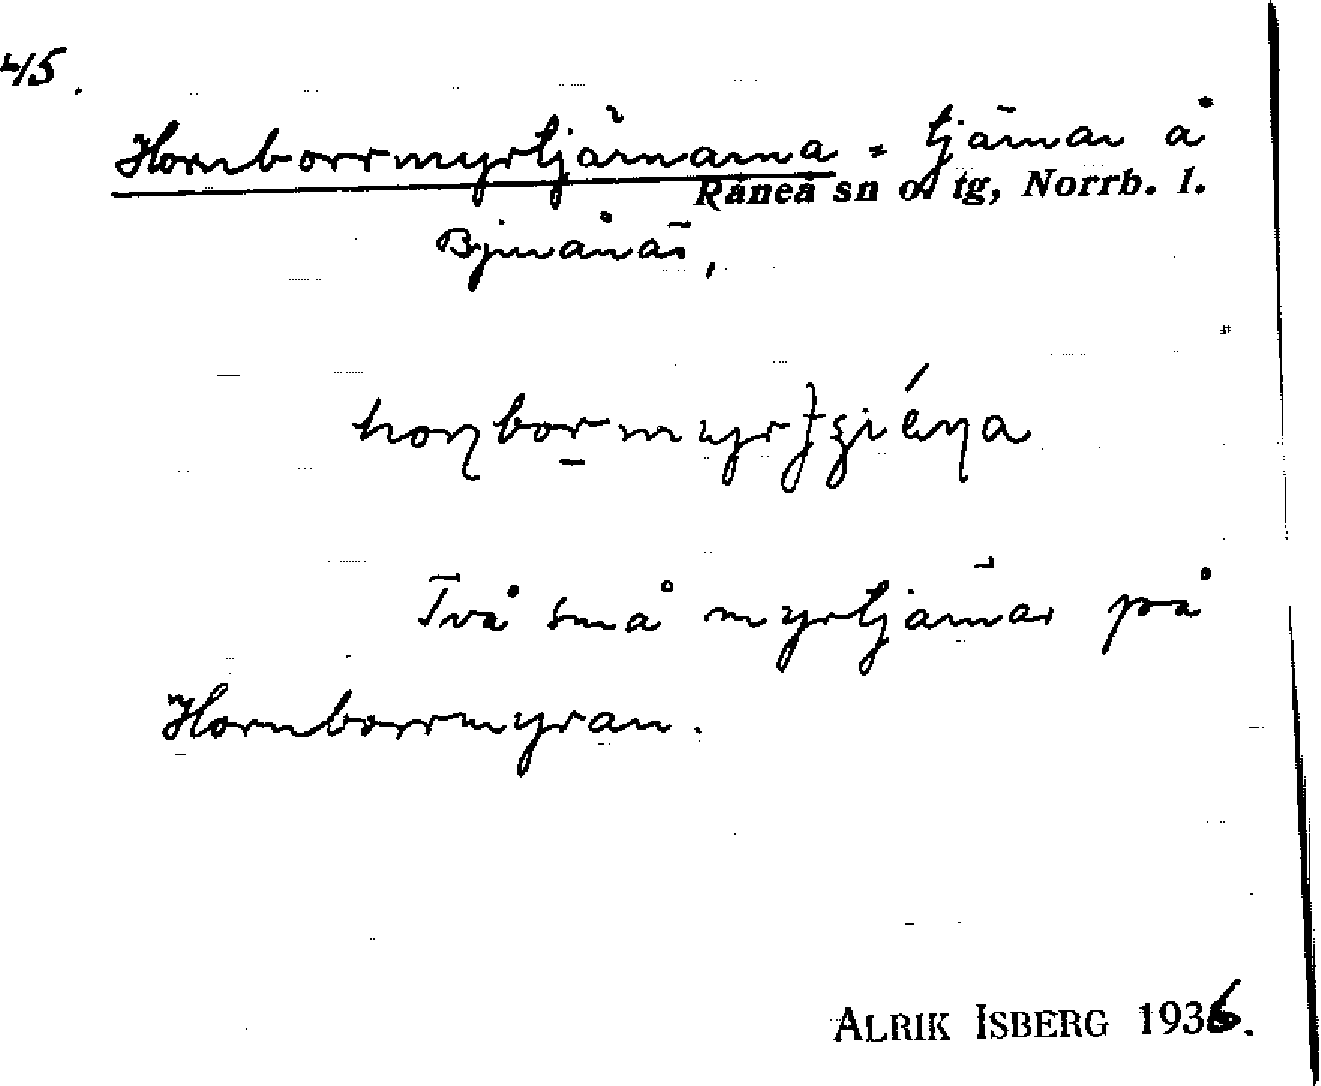 45.
Hornborrmyrtjärnarna = tjärnar å
Råneå sn o. tg, Norrb. l.
Bjurånäs,
Två små myrtjärnar på
Hornborrmyran.
ALRIK ISBERG 1936.